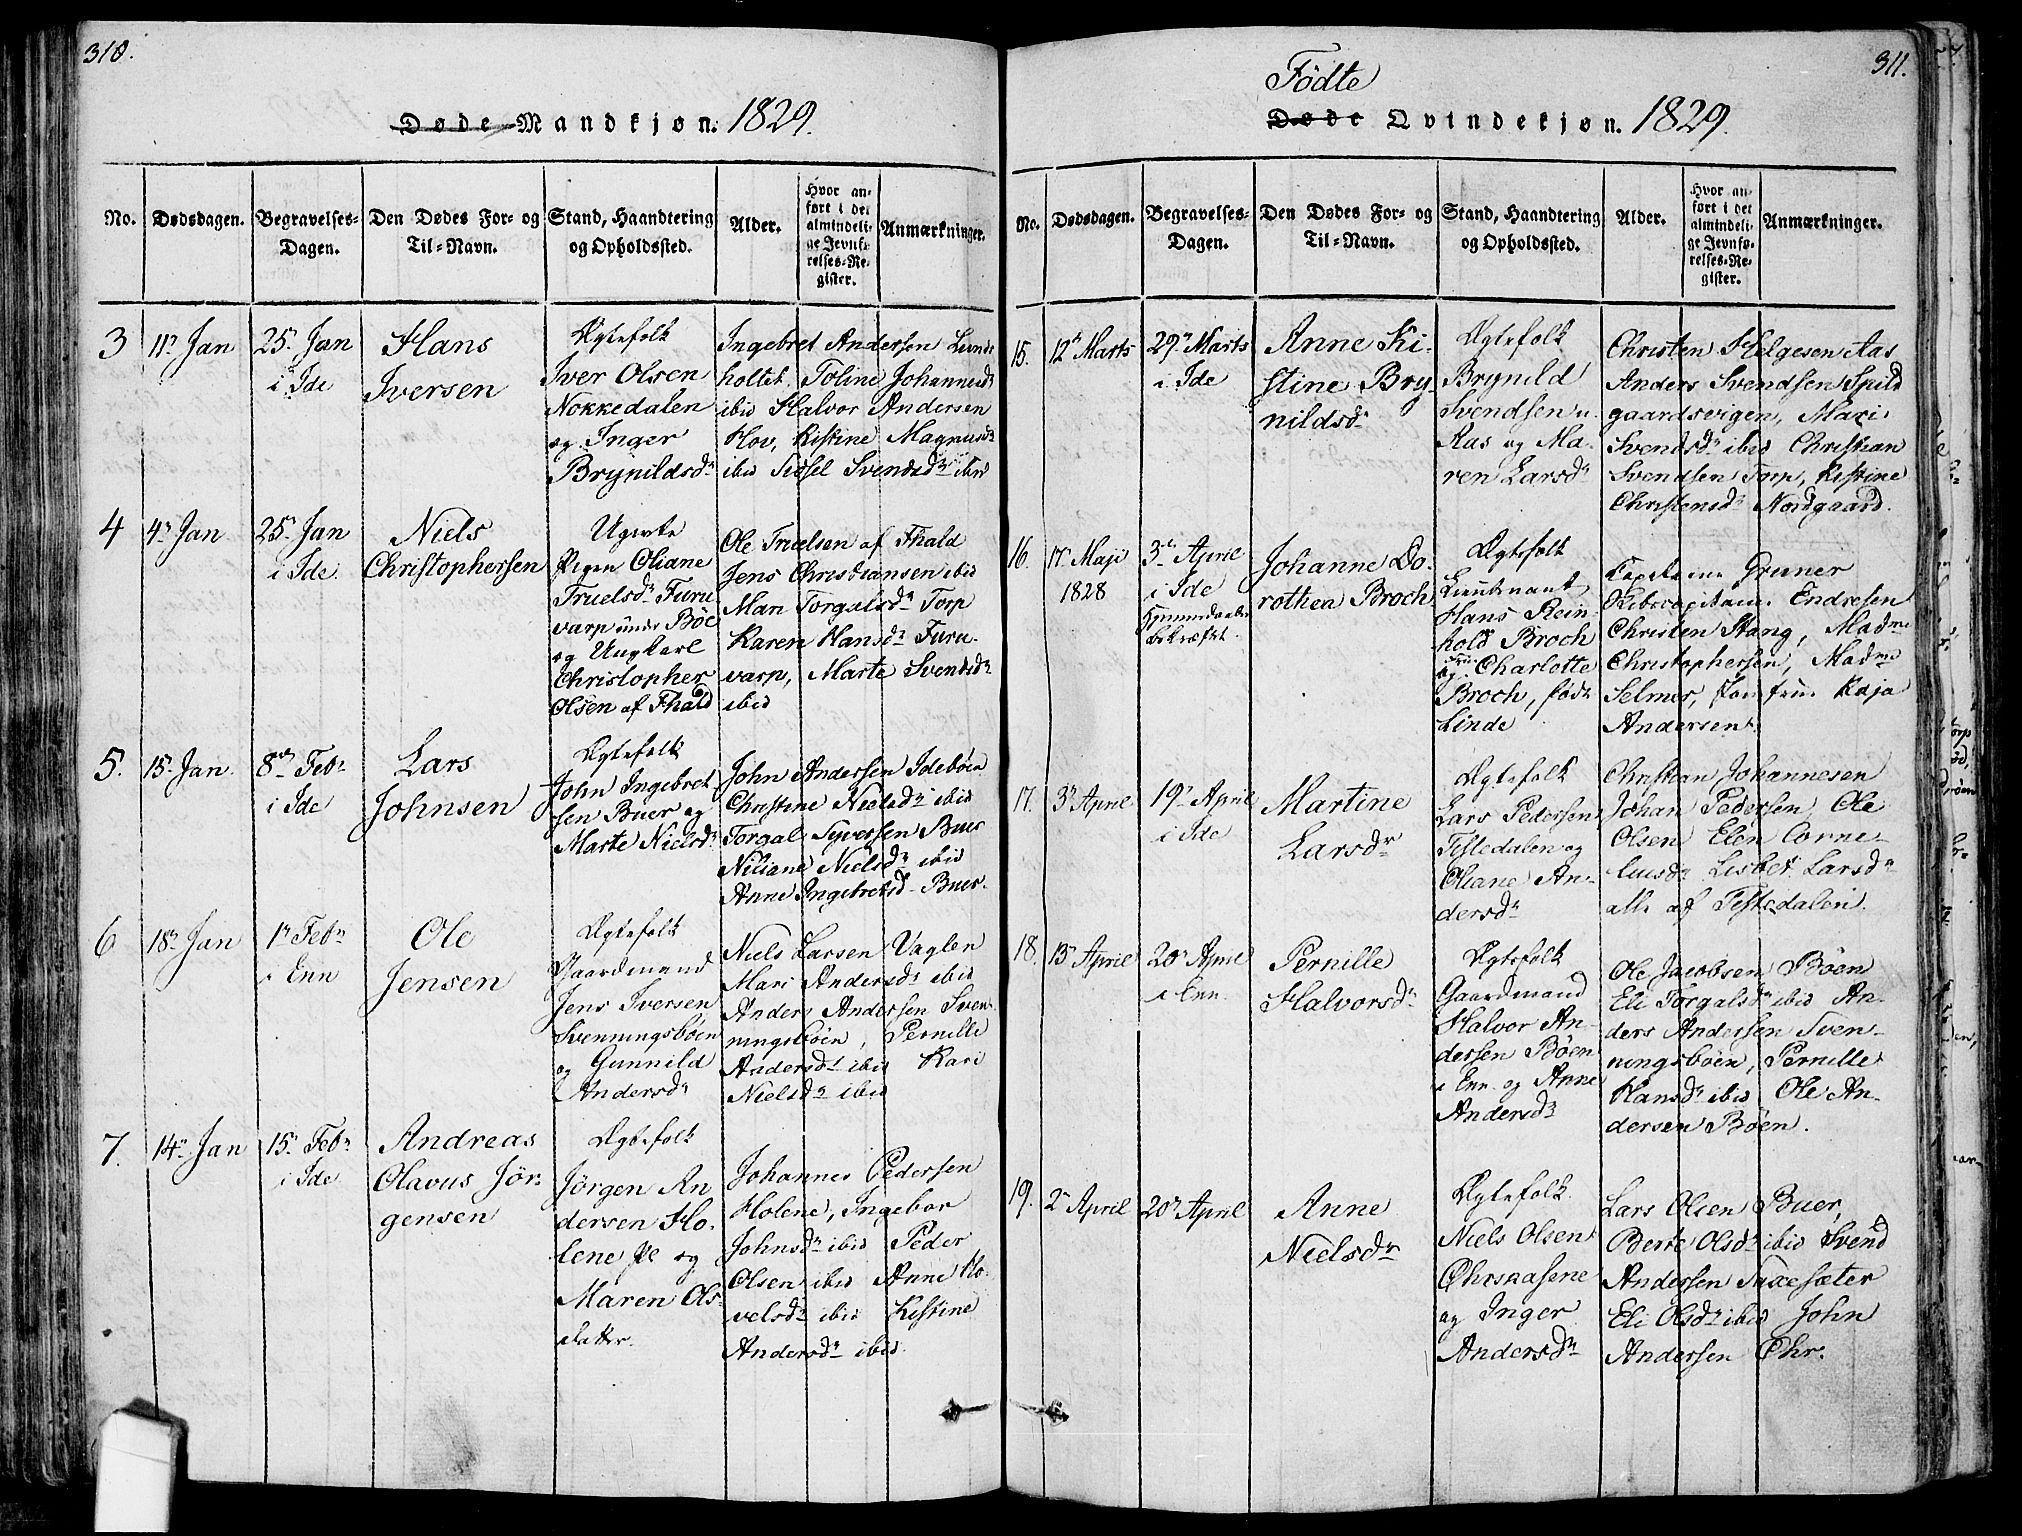 310.
Døde Mandkjøn. 1829.
No.
Dødsdagen.
Begravelses-
Dagen.
Den Dødes For- og
Til-Navn.
Stand, Haandtering
og Opholdssted.
Alder.
Hvor an-
ført i det
almindeli-
ge Jevnfø-
relses-Re-
gister.
Anmærkninger.
3
11te Jan
25de Jan
i Ide
Hans
Iversen
Ægtefolk
Iver Olsen
Nokkedalen
og Inger
Brynildsdr
Ingebret Andersen Lund-
holtet. Toline Johannesdr
ibid Halvor Andersen
Hov, Kistine Magnusdr
ibid Sidsel Svendsdr ibid
4
4de Jan
25de Jan
i Ide
Niels
Christophersen
Ugivte
Pigen Oliane
Truelsdr Furu-
varp under Böe
og Ungkarl
Christopher
Olsen af Fhald
Ole Truelsen af Fhald
Jens Christiansen ibid
Mari Torgalsdr Torp
Karen Hansdr Furu-
varp, Marte Svendsdr
ibid
5.
15de Jan.
8de Febr
i Ide
Lars
Johnsen
Ægtefolk
John Ingebret-
sen Buer og
Marte Nielsdr
John Andersen Ideböen
Christine Nielsdr ibid
Torgal Syversen Buer
Niliane Nielsdr ibid
Anne Ingebretsd. Buer.
6
18de Jan
1te Febr
i Enn
Ole
Jensen
Ægtefolk
Gaardmand
Jens Iversen
Svenningsböen
og Gunnild
Andersdr
Niels Larsen Vaglen
Mari Andersdr ibid
Anders Andersen Sven-
ningsböen, Pernille
Andersdr ibid Kari
Nielsdr ibid
7.
14de Jan
15de Febr
i Ide
Andreas
Olavus Jör-
gensen
Ægtefolk
Jörgen An-
dersen Ho-
lene Pe og
Maren Ols-
datter.
Johannes Pedersen
Holene, Ingebor
Johnsdr ibid Peder
Olsen ibid Anne Ho-
velsdr ibid Kistine
Andersdr ibid.
311.
Födte
Døde Qvindekjøn. 1829.
No.
Dødsdagen.
Begravelses-
Dagen.
Den Dødes For- og
Til-Navn.
Stand, Haandtering
og Opholdssted.
Alder.
Hvor an-
ført i det
almindeli-
ge Jevnfø-
relses-Re-
gister.
Anmærkninger.
15.
12te Marts
29de Marts
i Ide
Anne Ki-
stine Bry-
nildsdr
Ægtefolk
Brynild
Svendsen u.
Ras og Ma-
ren Larsdr
Christen Helgesen Aas
Anders Svendsen Spild-
gaardsvigen, Mari
Svendsdr ibid Christian
Svendsen Torp, Kistine
Christensdr Nordgaard.
16.
17. Maji
1828
3de April
i Ide
Hjemmedaaben
bekræftet.
Johanne Do-
rothea Broch
Ægtefolk
Lieutenant
Hans Rein-
hold Broch
og Frue Charlotte
Broch, född
Linde
Capitaine Gruner
Skibscapitain Endresen
Christen Stang, Madme
Christophersen, Madme
Selmer, Jomfrue Kaja
Andersen.
17.
3de April
19de April
i Ide
Martine
Larsdr
Ægtefolk
Lars Pedersen
Tistedalen og
Oliane An-
dersdr
Christian Johannesen
Johan Pedersen, Ole
Olsen Elen Corne-
liusdr Lisbet Larsdr
alle af Tistedalen.
18.
13de April
20de April
i Enn.
Pernille
Halvorsdr
Ægtefolk
Gaardmand
Halvor An-
dersen Böen
i Enn og Anne
Andersdr
Ole Jacobsen Böen
Eli Torgalsdr ibid An-
ders Andersen Sven-
ningsböen, Pernille
Hansdr ibid Ole An-
dersen Böen.
19.
2de April
20de April
Anne
Nielsdr
Ægtefolk.
Niels Olsen
Ørsaasene
og Inger
Andersdr
Lars Olsen Buer,
Berte Olsdr ibid Svend
Andersen Saxesæter
Eli Olsdr ibid John
Andersen Ohr.